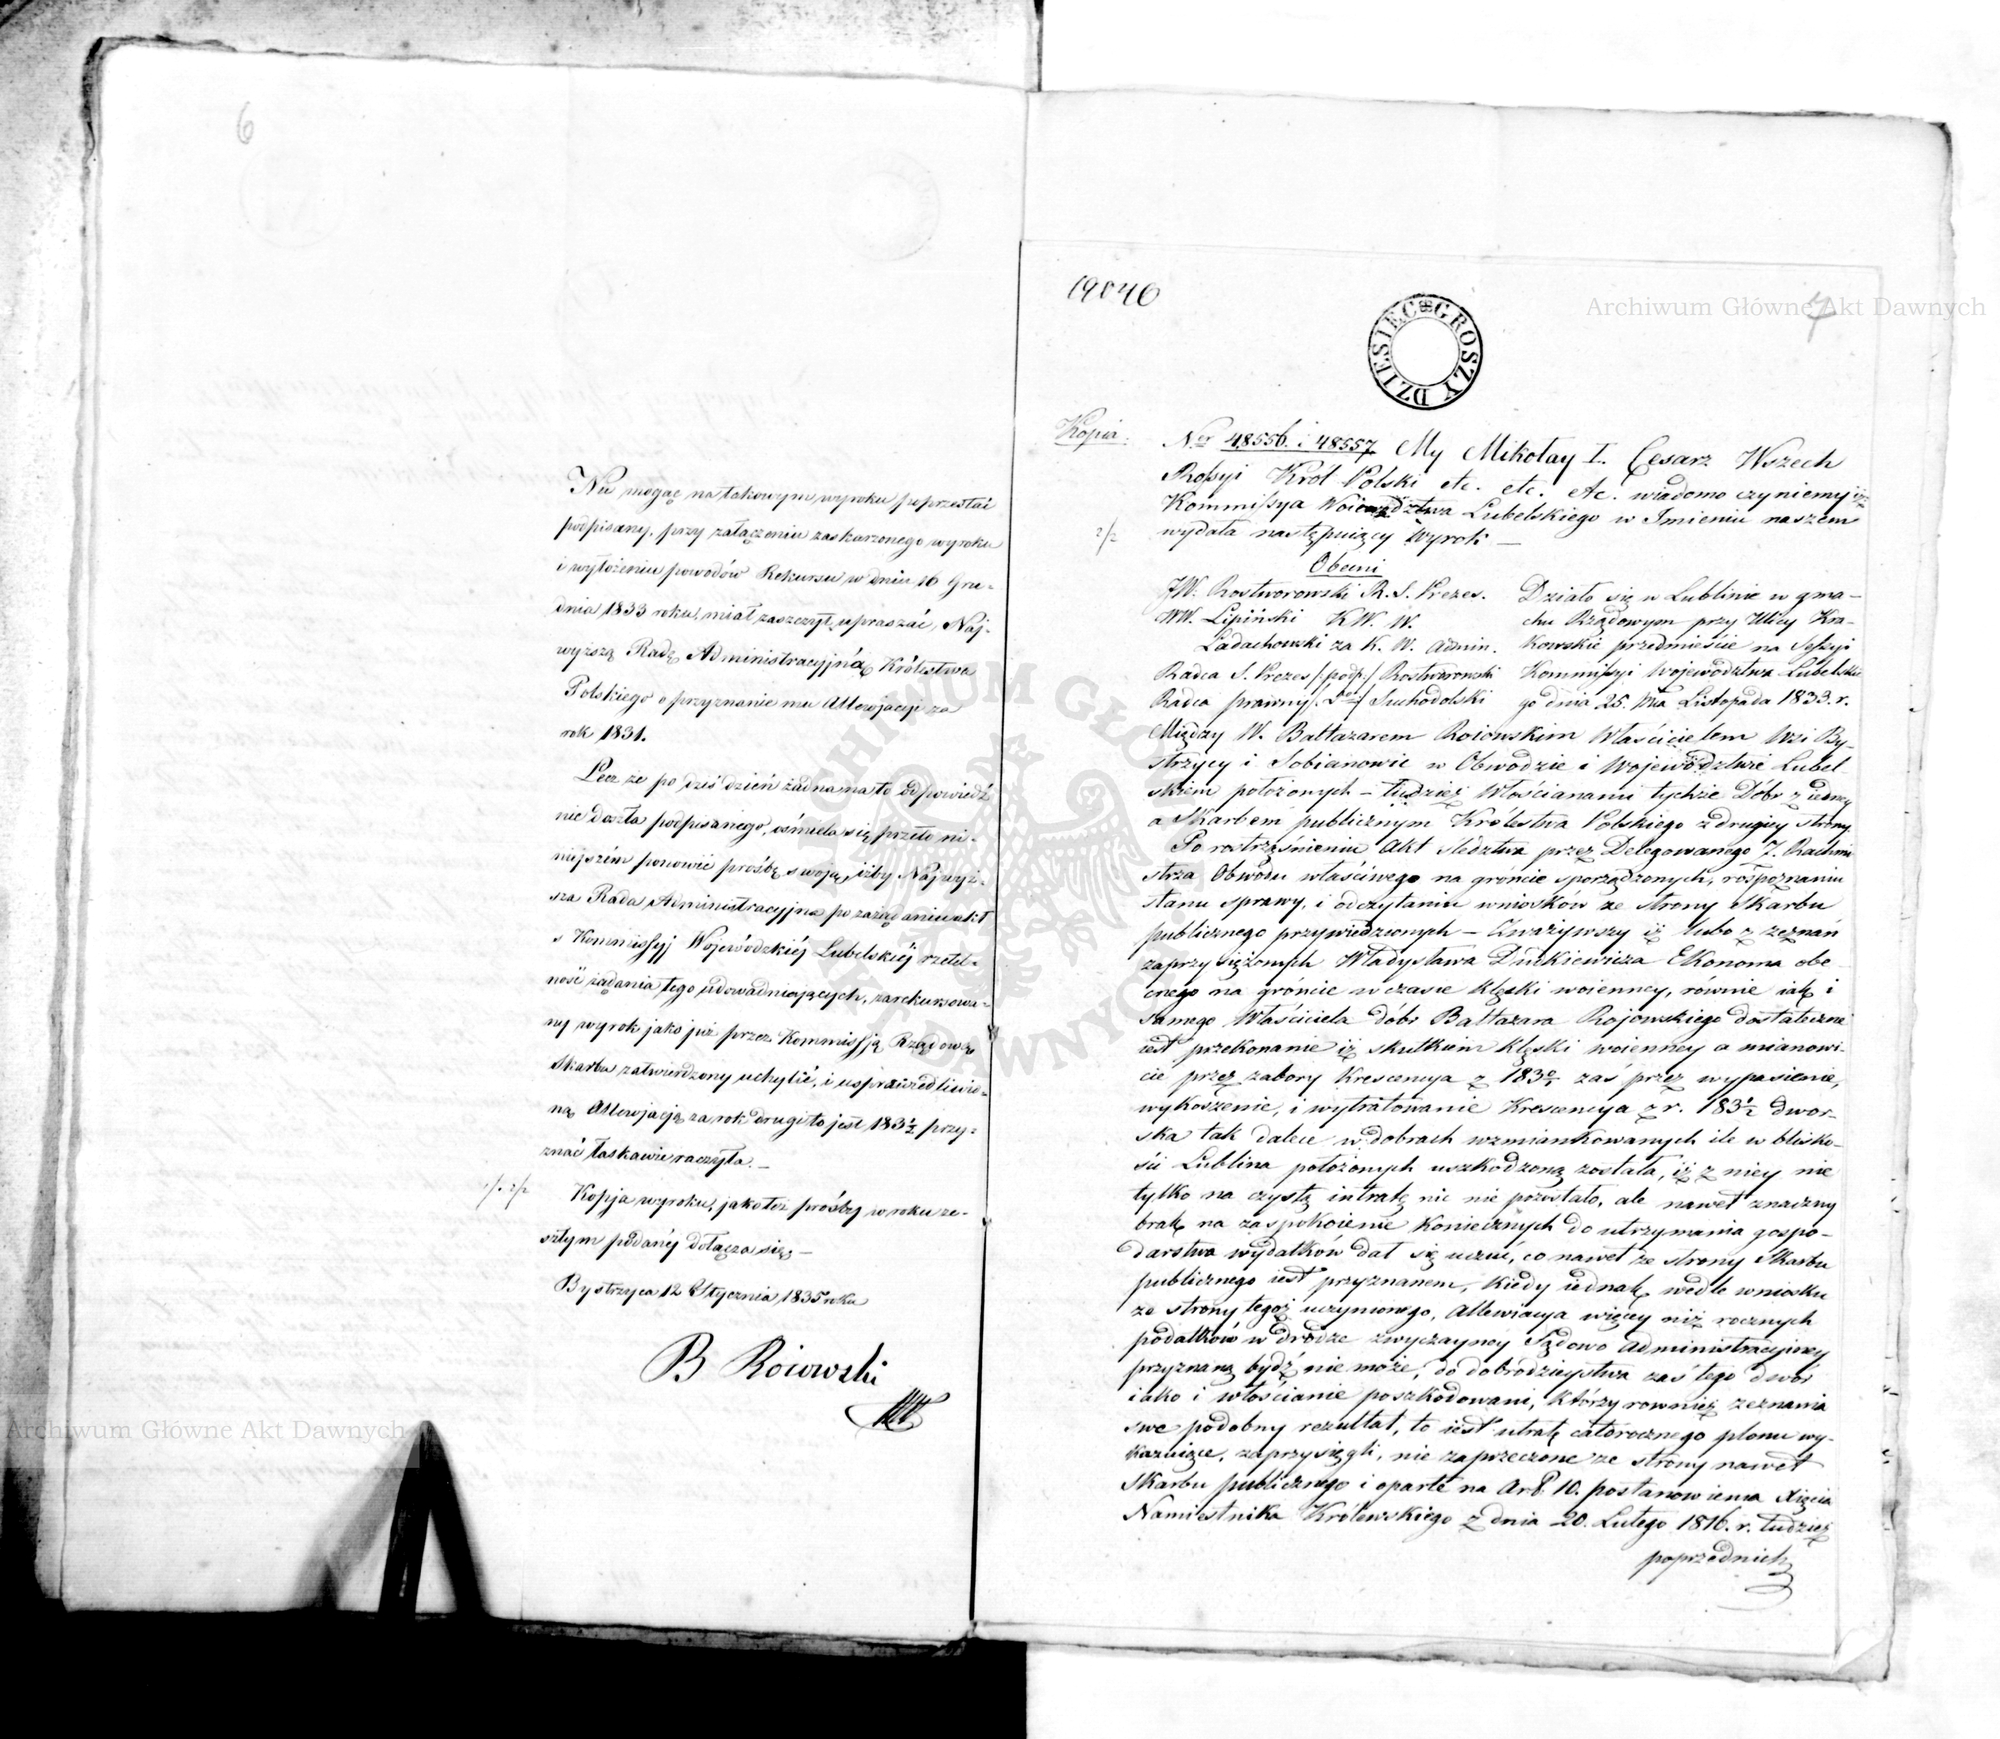 6
Nie mogąc na takowym wyroku poprzestać
podpisany, przy załączeniu zaskarzonego wyroku
i wyłożeniu powodów Rekursu w dniu 16 Gru-
dnia 1833 roku, miał zaszczyt upraszać, Naj-
wyższą Radę Administracyjną Królestwa
Polskiego o przyznanie mu Allewjacyi za
rok 1831.
Lecz ze po dziś dzień żadna na to odpowiedź
nie doszła podpisanego, ośmiela się przeto ni-
niejszém ponowić prośbę swoją, iżby Najwyż-
sza Rada Administracyjna po zażądaniu akt
s Kommissyj Wojewódzkiéj Lubelskiéj rzetel-
ność żądania tego udowadniających, zarekursowa-
ny wyrok jako już przez Kommissją Rządową
Skarbu zatwierdzony uchylić, i usprawiedliwio-
ną Allewjacją za rok drugi to jest 183½ przy-
znać łaskawie raczyła. —
Kopja wyroku, jako też prośby w roku ze-
szłym podanéj dołącza się, —
Bystrzyca 12 Stycznia 1835 roku
B Roiowski
Archiwum Główne Akt Dawnych
19846
DZIESIĘC GROSZY
4
Archiwum Główne Akt Dawnych
Kopia.
Ner 48556. i 48557 My Mikołay I. Cesarz Wszech
Rossyi Król Polski etc. etc. etc. wiadomo czyniemy iż
Kommissya Woiewództwa Lubelskiego w Imieniu naszem
2/2
wydała następuiący Wyrok —
Obecni
JW. Rostworowski R. S. Prezes.
WW. Lipiński K. W. W.
Ladachowski za K. W. Admin.
Radca S. Prezes /podp:/ Rostworowski
Radca prawny /. Do:/ Suchodolski
Działo się w Lublinie w gma-
chu Rządowym przy Ulicy Kra-
kowskie przedmieście na Sessyi
Kommissyi Województwa Lubelskie
go dnia 25. Mca Listopada 1833. r.
Między W. Baltazarem Roiowskim Właścicielem Wsi By-
strzycy i Sobianowic w Obwodzie i Województwie Lubel-
skiem położonych — tudzież Włościanami tychże Dóbr z iedney
a Skarbem publicznym Królestwa Polskiego z drugiey strony.
Po rostrząśnieniu Akt śledztwa przez Delegowanego J. Rachmi
strza Obwodu właściwego na gróncie sporządzonych, rozpoznaniu
stanu sprawy, i odczytaniu wniosków ze strony Skarbu
publicznego przywiedzionych — Zważywszy iż lubo z zeznań
zaprzysiężonych Władysława Dutkiewicza Ekonoma obe
cnego na gróncie w czasie klęski woienney, rownie iak i
samego Właściciela dóbr Baltazara Rojowskiego dostateczne
iest przekonanie iż skutkiem klęski woienney a mianowi-
cie przez zabory krescencya z 183 0/1 zaś przez wypasienie,
wykoszenie, i wytratowanie krescencya z r. 183½ dwor-
ska tak dalece w dobrach wzmiankowanych ile w blisko-
ści Lublina położonych uszkodzoną została, iż z niey nie
tylko na czystą intratę nic nie pozostało, ale nawet znaczny
brak na zaspokoienie koniecznych do utrzymania gospo-
darstwa wydatków dał się uczuć, co nawet ze strony Skarbu
publicznego iest przyznanem, kiedy iednak wedle wniosku
ze strony tegoż uczynionego, Allewiacya więcey niż rocznych
podatków w drodze zwyczayney Sądowo Administracyiney
przyznaną bydź nie może, do dobrodzieystwa zaś tego dwór
iako i włościanie poszkodowani, którzy rownież zeznania
swe podobny rezultat, to iest utratę całorocznego plonu wy-
kazuiące, zaprzysięgli, nie zaprzeczone ze strony nawet
Skarbu publicznego i oparte na Art. 10. postanowienia Xięcia
Namiestnika Królewskiego z dnia 20. Lutego 1816. r. tudzież
poprzednich